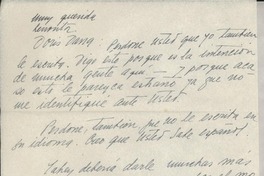 Muy querida
Lenorita
Doris Dana: Perdone Usted que yo tambien
le escriba. Dejo esto porque es la intencion
de muncha gente aqui — y porque aca-
so esto le paresca extraño ya que no
me identifique ante Usted.
Perdone, tambien que no le escriba en
su idioma. Creo que Usted sabe español.
deberia darle munchas mas